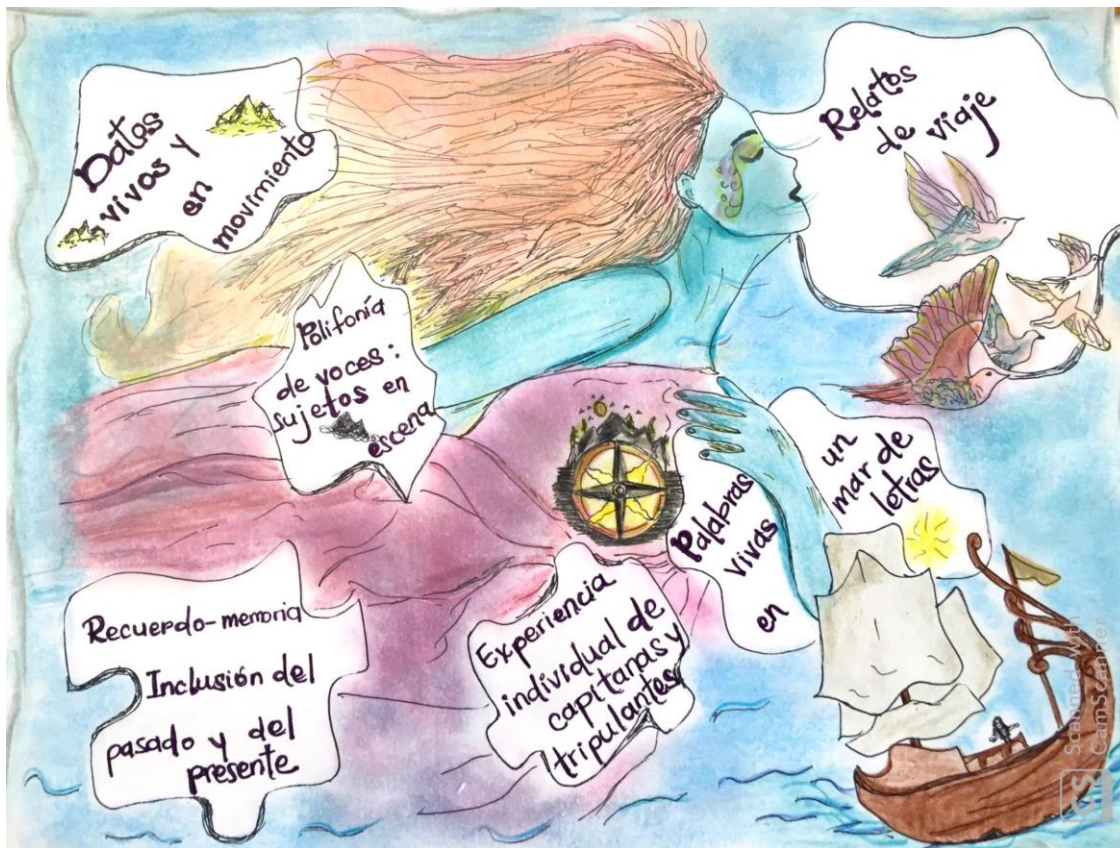 Datos
vivos y
en
movimiento
Relatos
de viaje
Polifonía
de voces:
sujetos en
escena
Palabras
vivas
en
un
mar de
letras
Recuerdo-memoria
Inclusión del
pasado y del
presente
Experiencia
individual de
capitanas y
tripulantes
CS Scanned with
CamScanner